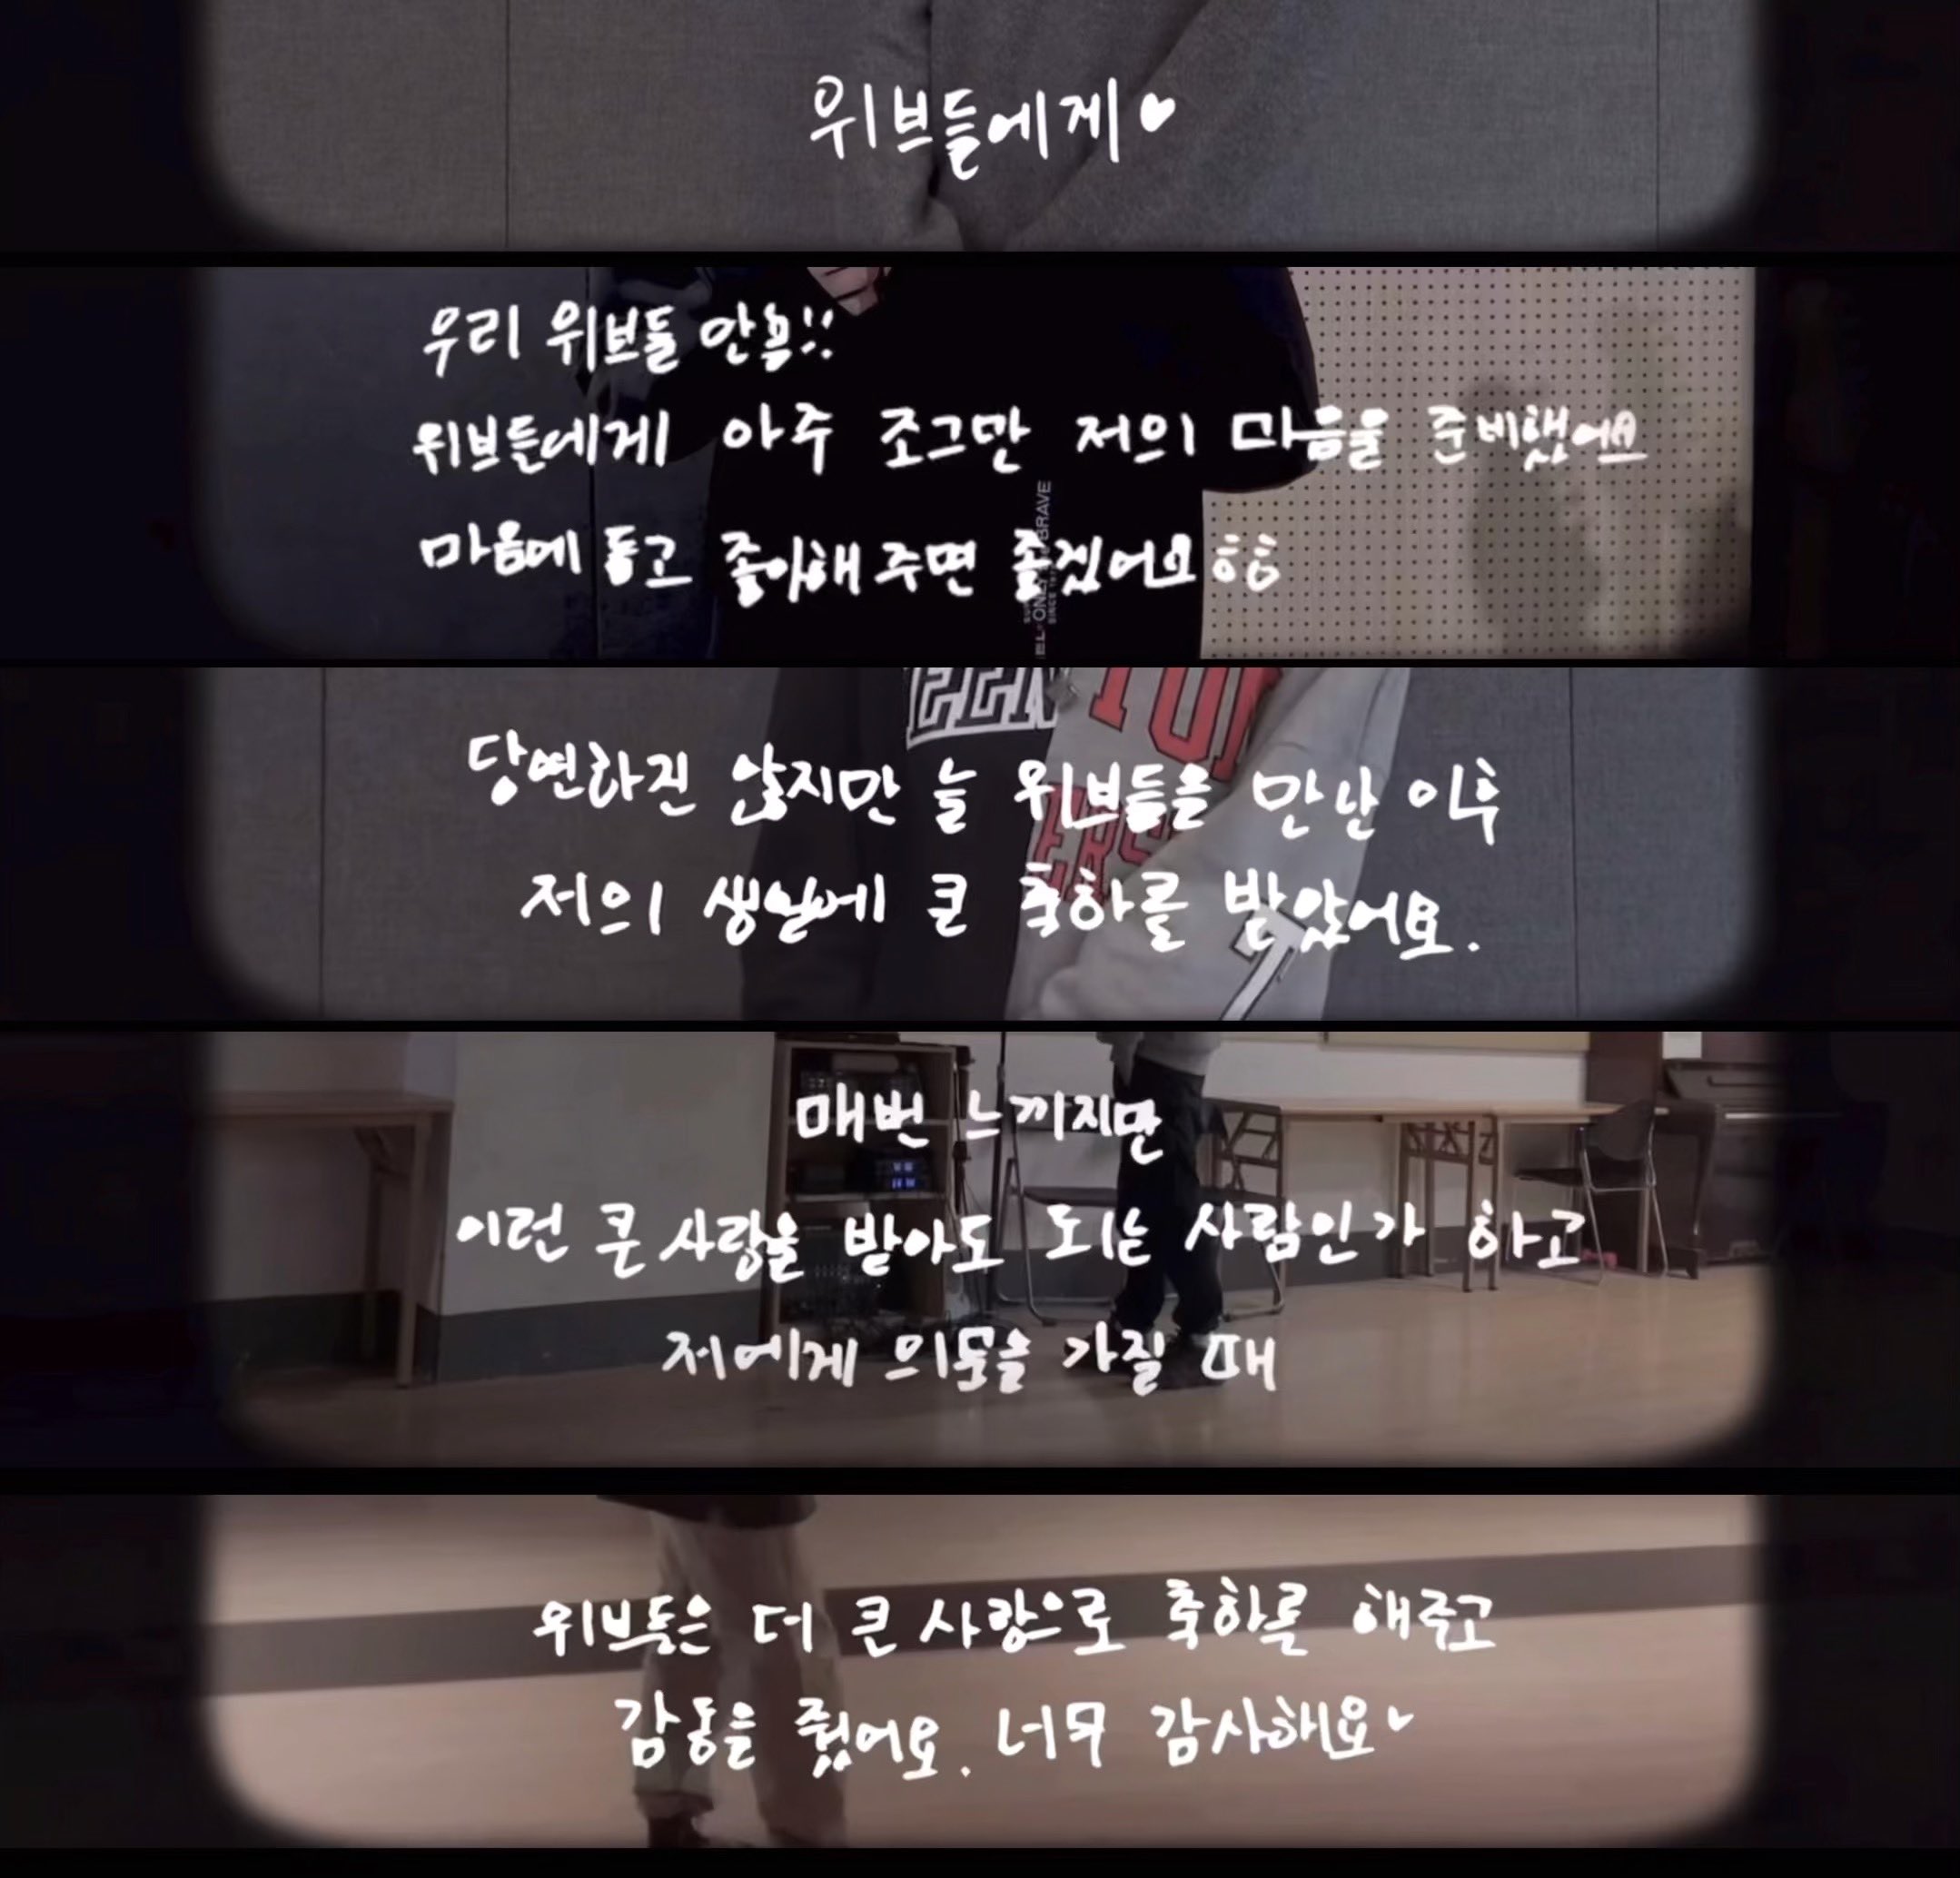 위브들에게♥
우리 위브들 안뇽!!
위브들에게 아주 조그만 저의 마음을 준비했어요
마음에 들고 좋아해 주면 좋겠어요 ㅎㅎ
BRAVE
ONLY
SINCE
EEN
TON
ERS
당연하진 않지만 늘 위브들을 만난 이후
저의 생일에 큰 축하를 받았어요.
7
매번 느끼지만
이런 큰 사랑을 받아도 되는 사람인가 하고
저에게 의문을 가질 때
위브들은 더 큰 사랑으로 축하를 해주고
감동을 줬어요. 너무 감사해요♥